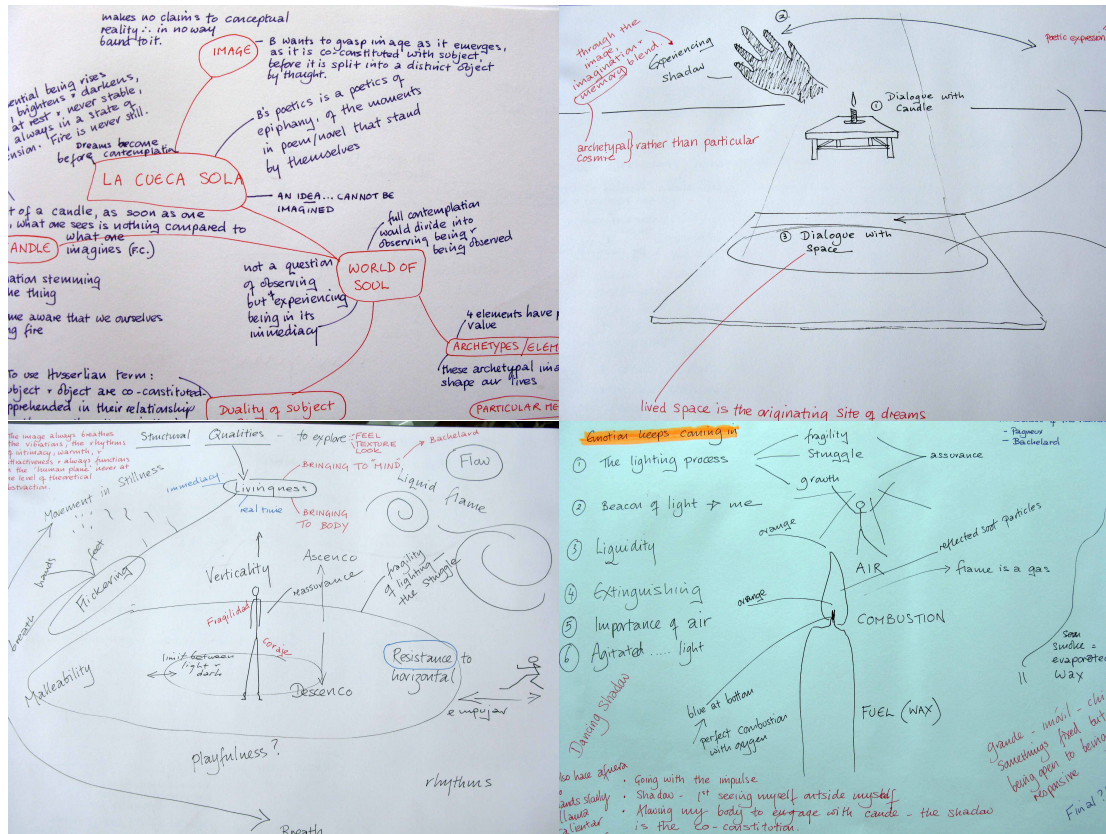 makes no claims to conceptual
reality ∴ in no way
bound to it.
IMAGE
- B wants to grasp image as it emerges,
as it is co-constituted with subject,
before it is split into a distinct object
by thought.
ential being rises
brightens & darkens,
at rest & never stable,
always in a state of
nsion. Fire is never still.
Dreams become
before contemplation
B's poetics is a poetics of
epiphany, of the moments
in poem/novel that stand
by themselves
LA CUECA SOLA
AN IDEA... CANNOT BE
IMAGINED
t of a candle, as soon as one
, what one sees is nothing compared to
what one
imagines (F.C.)
ANDLE
full contemplation
would divide into
observing being &
being observed
WORLD OF
SOUL
not a question
of observing
but experiencing
being in its
immediacy
nation stemming
ne thing
me aware that we ourselves
ng fire
4 elements have p
value
ARCHETYPES / ELEM
these archetypal ima
shape our lives
To use Husserlian term:
ubject & object are co-constituted
pprehended in their relationship
DUALITY OF SUBJECT
PARTICULAR ME
through the
image,
imagination &
memory blend.
Experiencing
Shadow
②
Poetic expression
① Dialogue with
Candle
archetypal } rather than particular
cosmic
③ Dialogue with
Space
lived Space is the originating Site of dreams
The image always breathes
the vibrations, the rhythms
of intimacy, warmth, &
ttractiveness & always functions
the 'human plane' never at
he level of theoretical
bstraction.
Structural Qualities - to explore
FEEL
TEXTURE
LOOK
Bachelard
BRINGING TO "MIND,"
Flow
immediacy
Livingness
real time
BRINGING
TO BODY
Liquid flame
Movement in Stillness
hands
feet
Flickering
breath
Verticality
Ascenco
reassurance
fragility
of lighting
the stuggle
Fragilidad
coraje
limit between
light &
dark
Malleability
Descenco
Resistance to
horizontal
empujar
playfulness?
rhythms
Breath
Emotion keeps coming in
- Pagneux
- Bachelard
① The lighting process
fragility
Stuggle
growth
assurance
② Beacon of light → me
orange
③ Liquidity
reflected soot particles
AIR
flame is a gas
④ Extinguishing
orange
COMBUSTION
⑤ Importance of air
⑥ Agitated ..... light
soon
Smoke =
evaporated
Wax
blue at bottom
perfect combustion
with oxygen
FUEL (WAX)
Dancing Shadow
grande - móvil - chi
Somethings fixed but
being open to being
responsive
lso hace afuera
llama
alientar
• Going with the impulse
• Shadow - 1st seeing myself outside myself
• Allowing my body to engage with cande - the shadow
is the co-constitution.
Final?